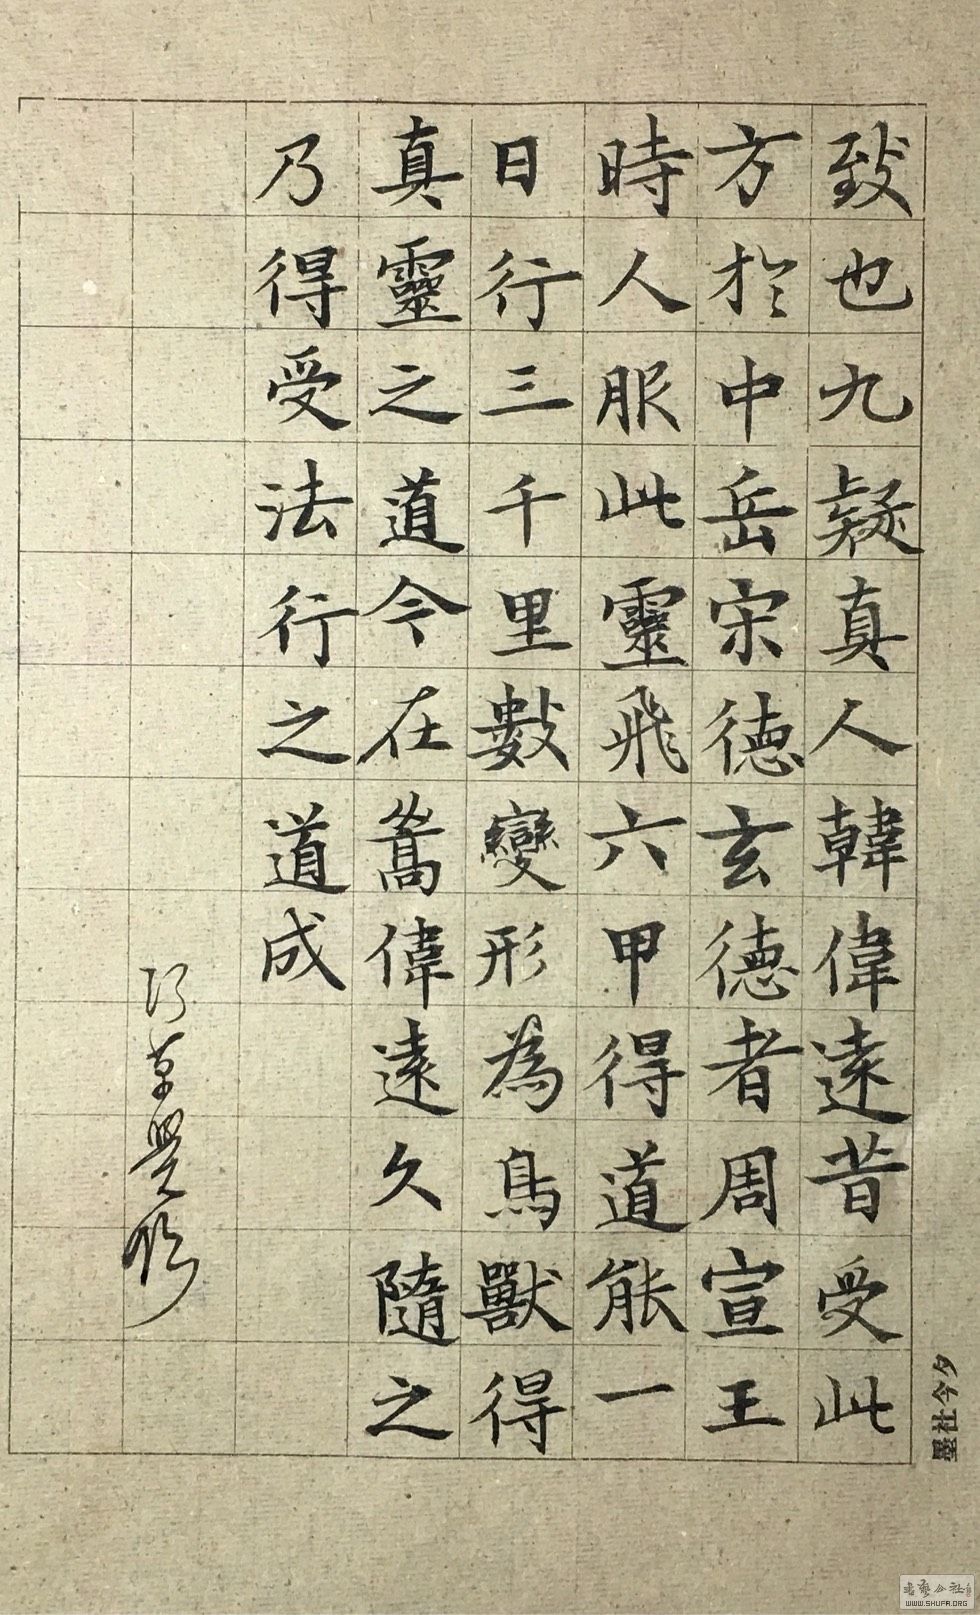 致也九疑真人韓偉遠昔受此
方於中岳宋德玄德玄者周宣王
時人服此靈飛六甲得道能一
日行三千里數變形為鳥獸得
真靈之道今在嵩偉遠久隨之
乃得受法行之道成
墨社今夕
WWW.SHUFA.ORG